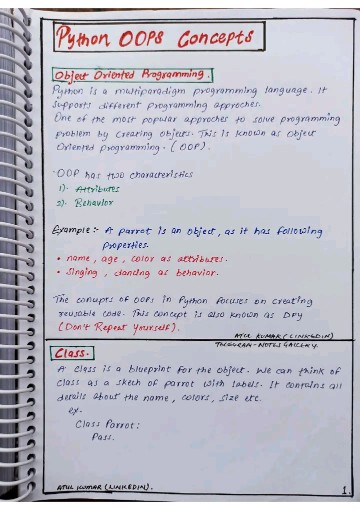 Python OOPS Concepts
Object Oriented Programming.
Python is a multiparadigm programming language. It
supports different programming approches.
One of the most popular approches to solve programming
problem by creating objects. This is known as object
Oriented programming. (OOP).
OOP has two characteristics
1). Attributes
2). Behavior
Example :- A parrot is an object, as it has following
properties.
• name, age, color as attributes.
• singing, dancing as behavior.
The concepts of OOPs in Python focuses on creating
reusable code. This concept is also known as Dry
(Don't Repeat Yourself).
ATUL KUMAR (LINKEDIN)
TELEGRAM - NOTES GALLERY.
Class.
A class is a blueprint for the object. We can think of
class as a sketch of parrot with labels. It contains all
details about the name, colors, size etc.
ex-
Class Parrot:
Pass.
ATUL KUMAR (LINKEDIN).
1.